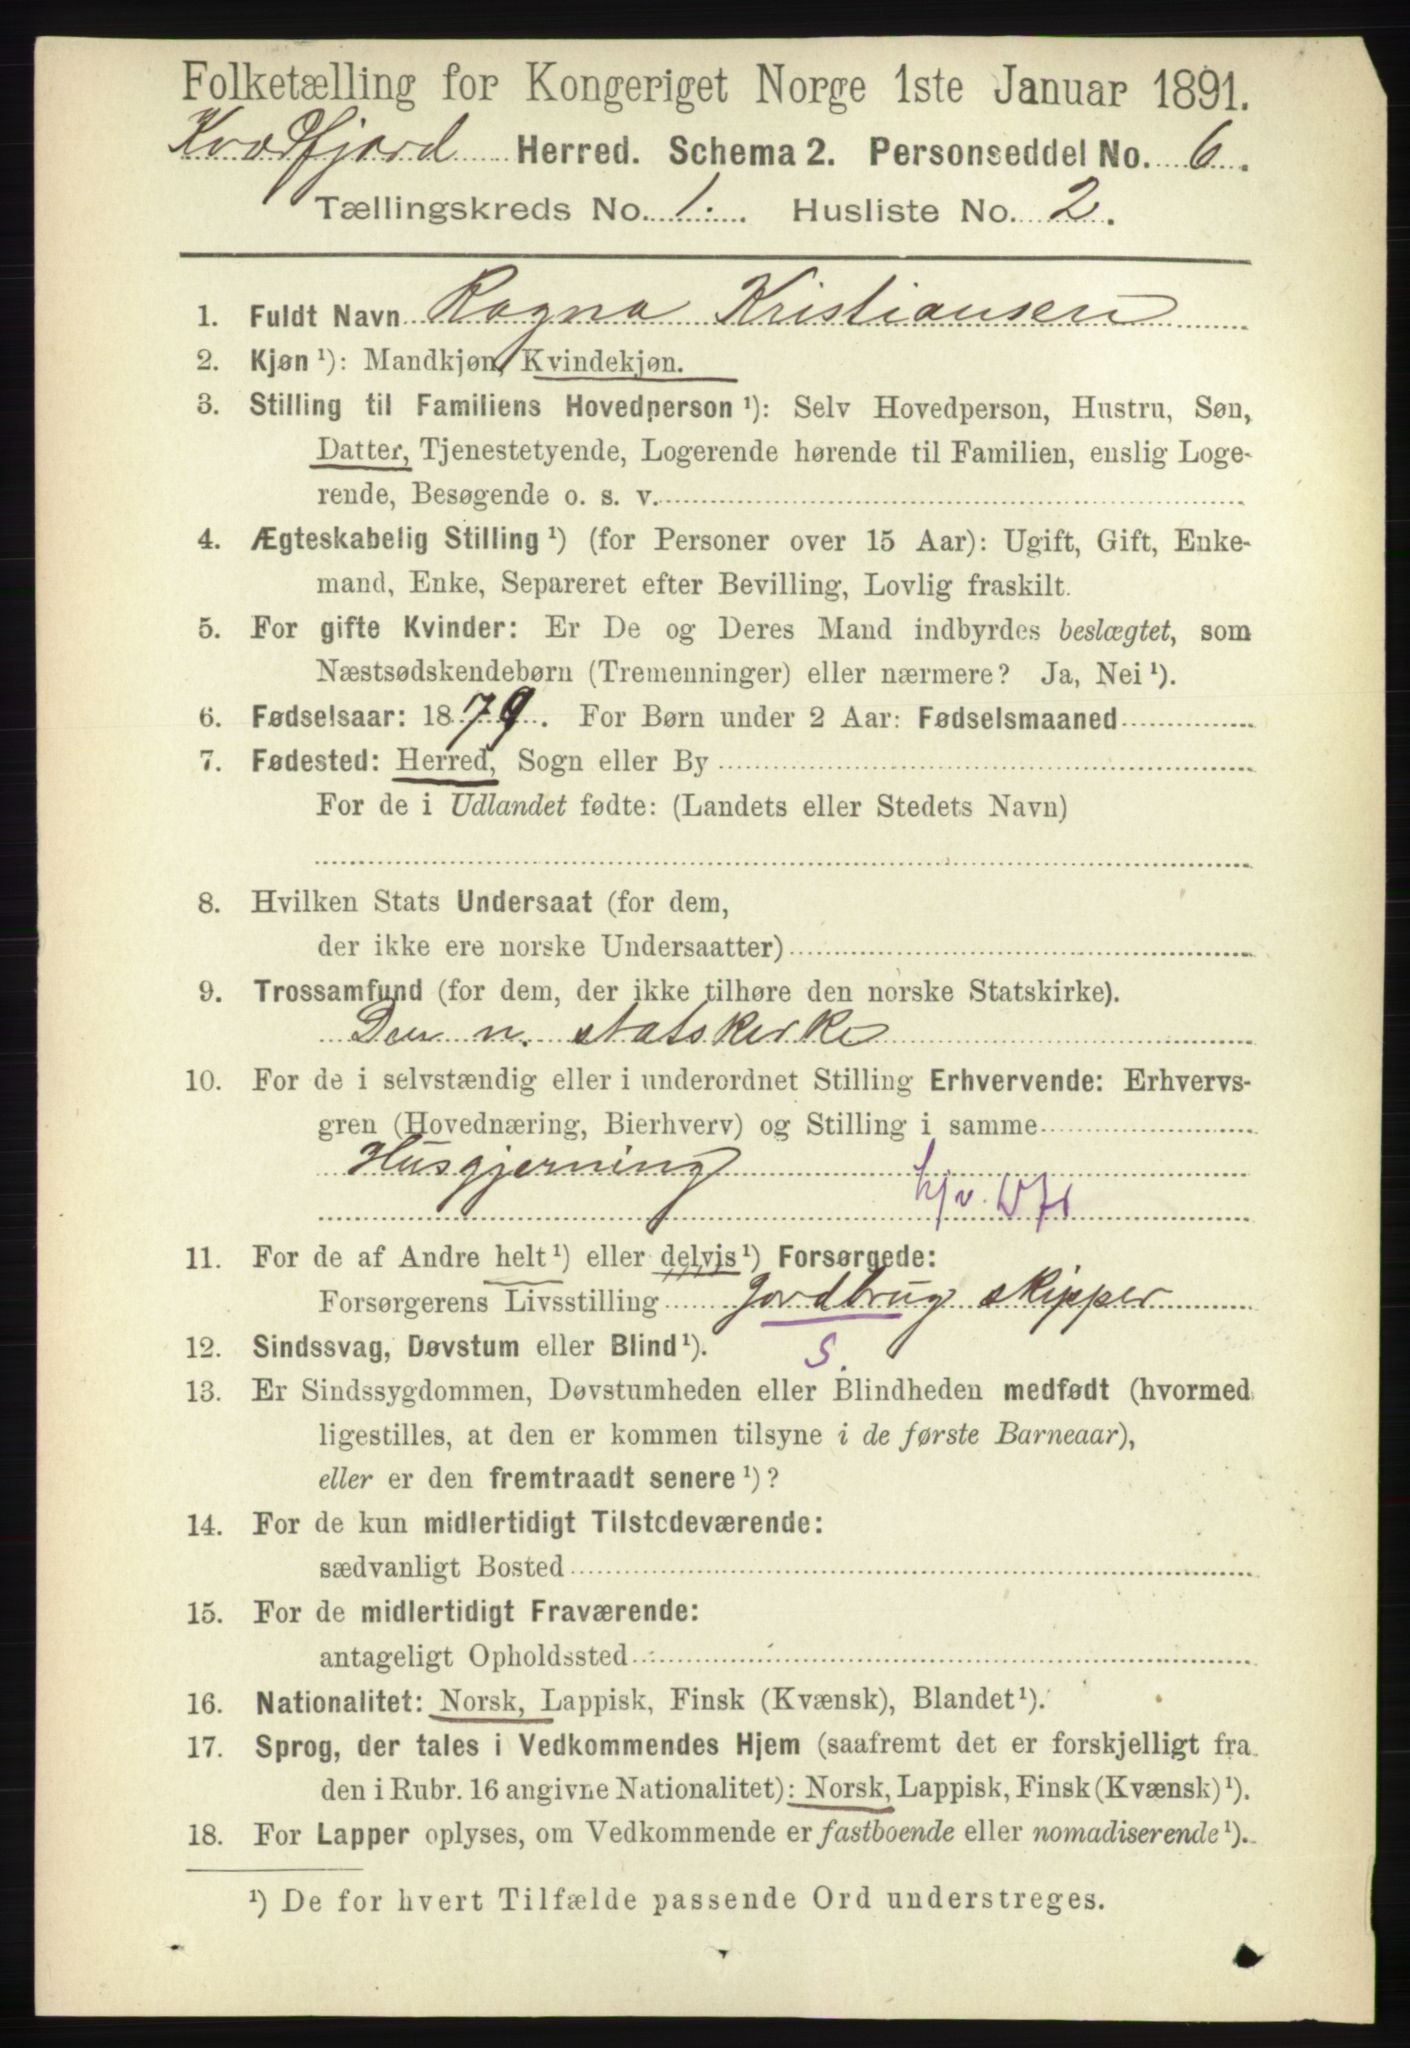 Folketælling for Kongeriget Norge 1ste Januar 1891.
Kvæfjord Herred. Schema 2. Personseddel No. 6.
Tællingskreds No. 1. Husliste No. 2.
1. Fuldt Navn Ragna Kristiansen
2. Kjøn ¹): Mandkjøn, Kvindekjøn.
3. Stilling til Familiens Hovedperson ¹): Selv Hovedperson, Hustru, Søn,
Datter, Tjenestetyende, Logerende hørende til Familien, enslig Loge-
rende, Besøgende o. s. v.
4. Ægteskabelig Stilling ¹) (for Personer over 15 Aar): Ugift, Gift, Enke-
mand, Enke, Separeret efter Bevilling, Lovlig fraskilt.
5. For gifte Kvinder: Er De og Deres Mand indbyrdes beslægtet, som
Næstsødskendebørn (Tremenninger) eller nærmere? Ja, Nei ¹).
6. Fødselsaar: 1879. For Børn under 2 Aar: Fødselsmaaned
7. Fødested: Herred, Sogn eller By
For de i Udlandet fødte: (Landets eller Stedets Navn)
8. Hvilken Stats Undersaat (for dem,
der ikke ere norske Undersaatter)
9. Trossamfund (for dem, der ikke tilhøre den norske Statskirke).
Den n. statskirke
10. For de i selvstændig eller i underordnet Stilling Erhvervende: Erhvervs-
gren (Hovednæring, Bierhverv) og Stilling i samme
Husgjerning
11. For de af Andre helt ¹) eller delvis ¹) Forsørgede:
Forsørgerens Livsstilling Jordbrug skipper
S.
12. Sindssvag, Døvstum eller Blind ¹).
13. Er Sindssygdommen, Døvstumheden eller Blindheden medfødt (hvormed
ligestilles, at den er kommen tilsyne i de første Barneaar),
eller er den fremtraadt senere ¹)?
14. For de kun midlertidigt Tilstedeværende:
sædvanligt Bosted
15. For de midlertidigt Fraværende:
antageligt Opholdssted
16. Nationalitet: Norsk, Lappisk, Finsk (Kvænsk), Blandet ¹).
17. Sprog, der tales i Vedkommendes Hjem (saafremt det er forskjelligt fra
den i Rubr. 16 angivne Nationalitet): Norsk, Lappisk, Finsk (Kvænsk) ¹).
18. For Lapper oplyses, om Vedkommende er fastboende eller nomadiserende ¹).
¹) De for hvert Tilfælde passende Ord understreges.